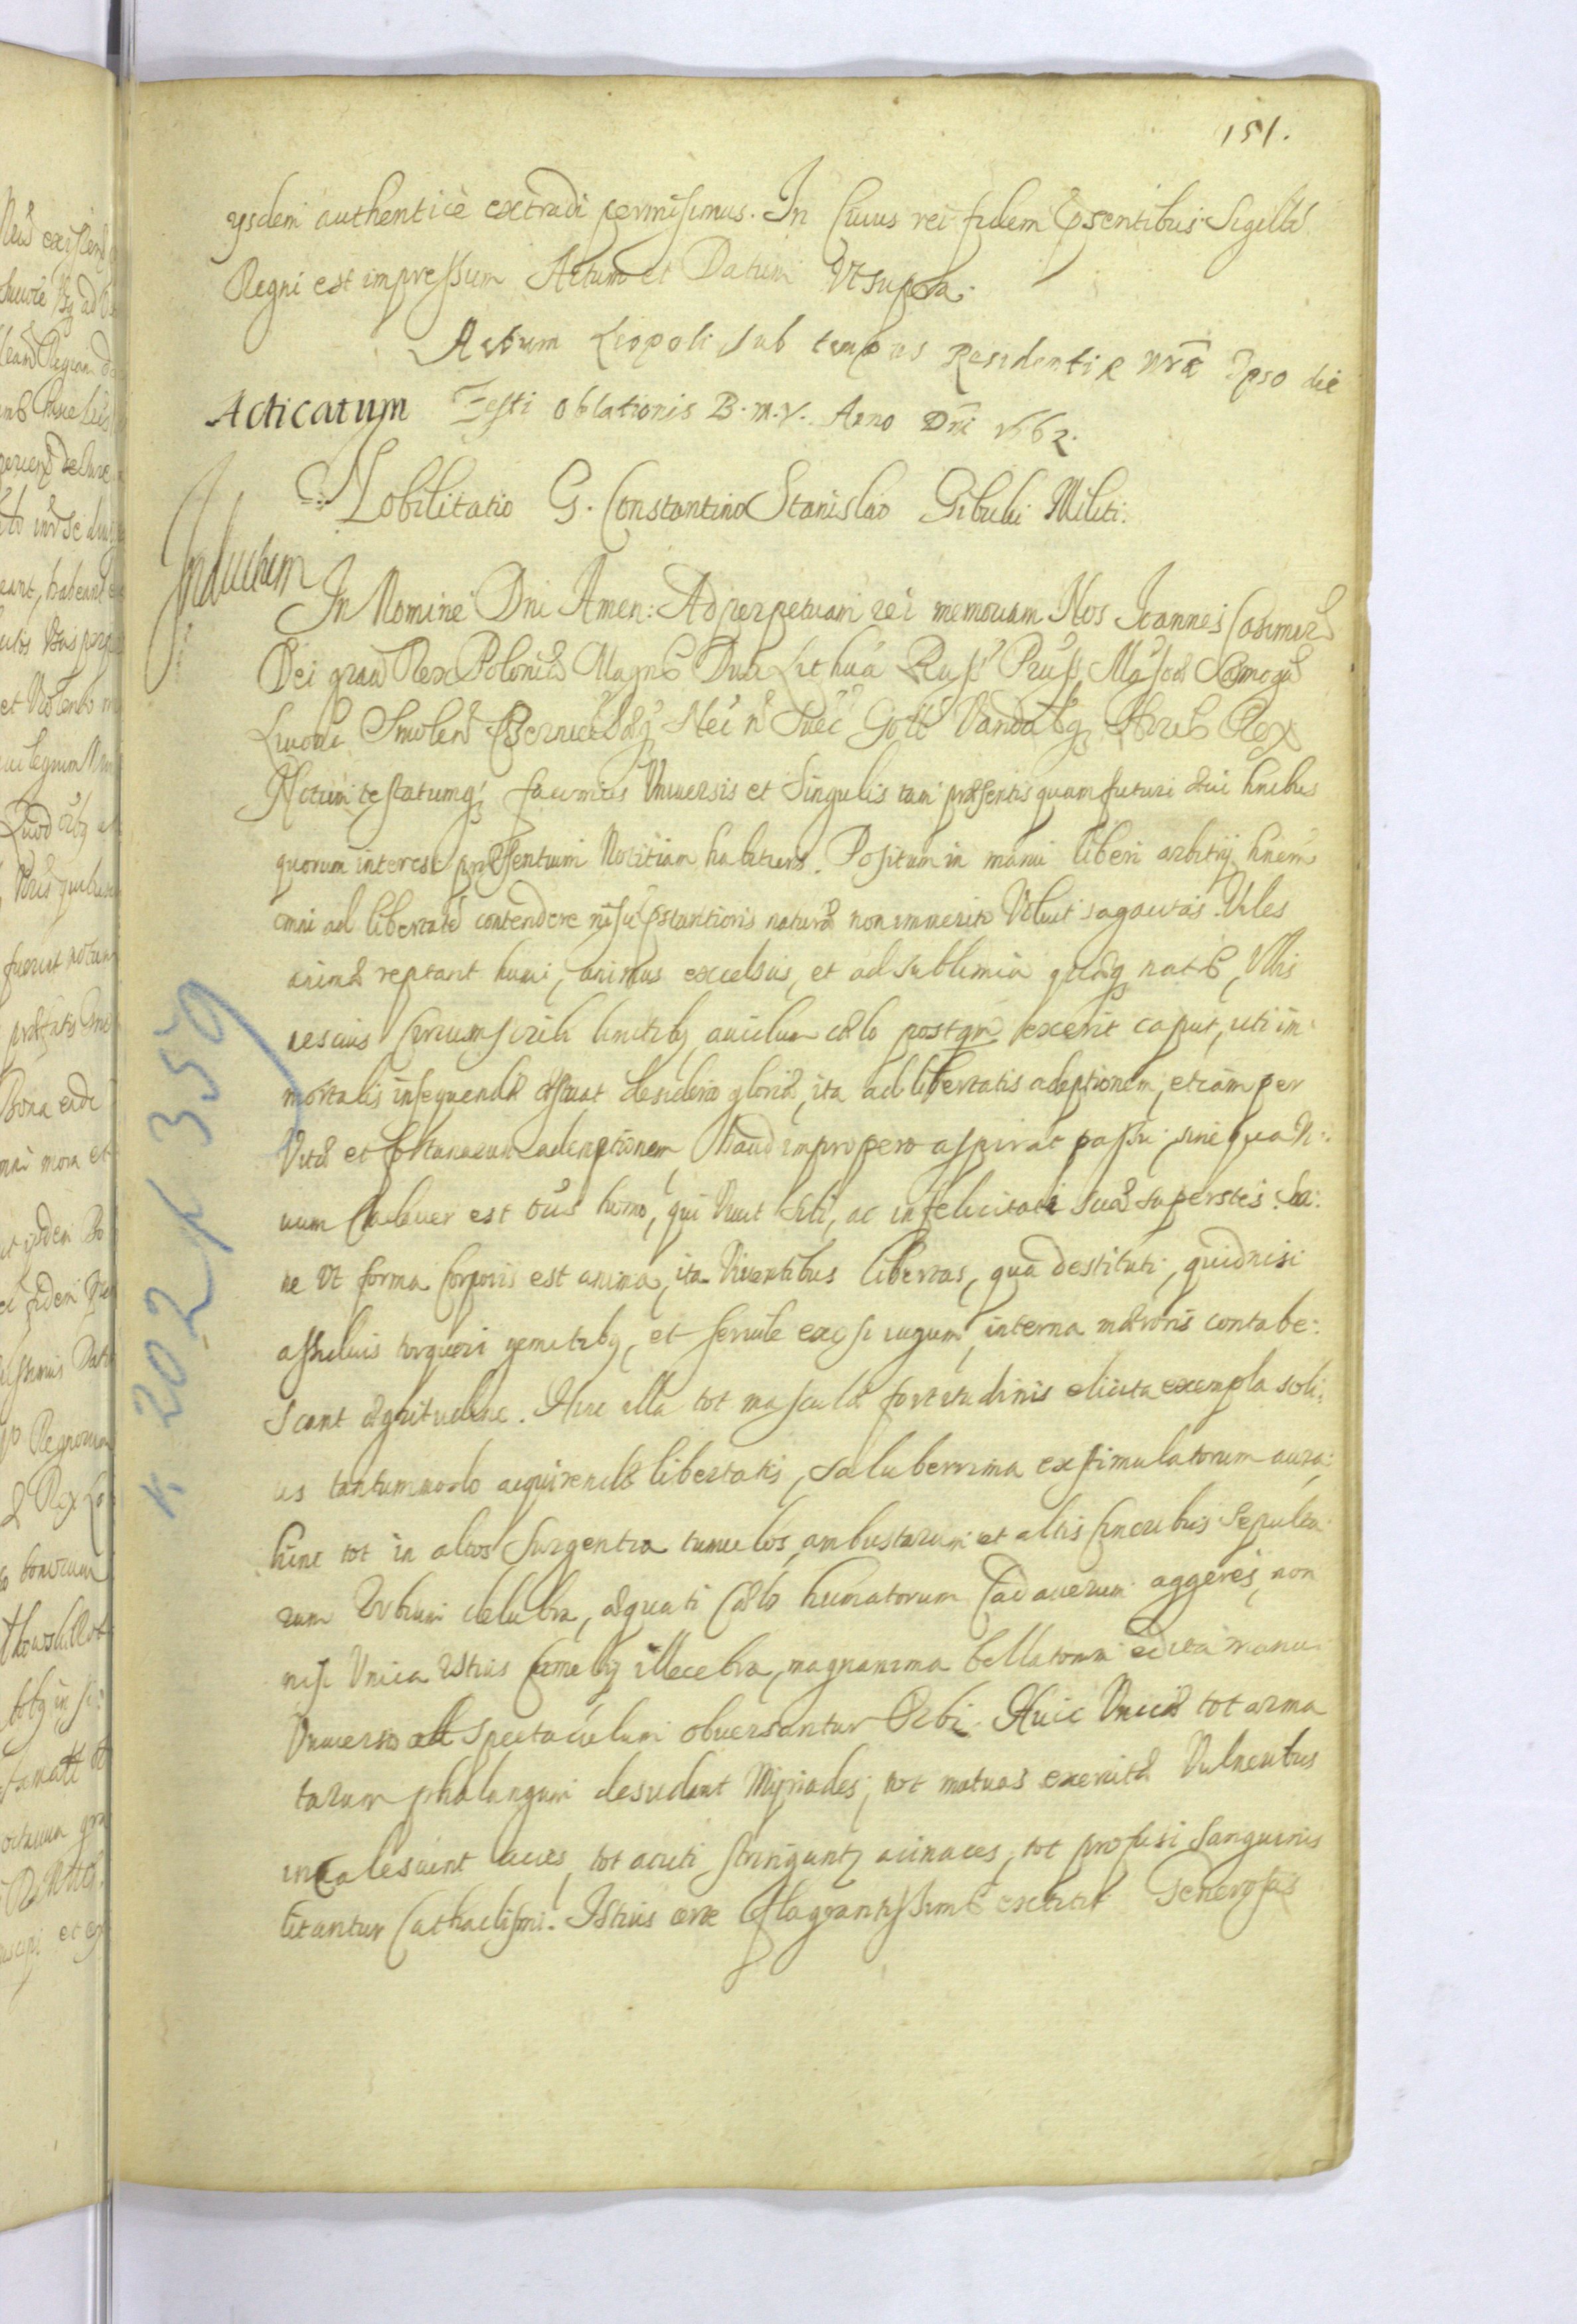 151.
ysdem authenticè extradi permisimus. In Cuius rei fidem Psentibus Sigillũ
Regni est impressum Actum et Datum Vt supra.
Actum Leopoli, sub tempus Residentiæ Nræ Ipso die
Acticatum Festi Oblationis B. M. V. Anno Dni 1662.
Nobilitatio G. Constantino Stanislao Gibuli Militi.
Inductum
In Nomine Dni Amen: Ad perpetuam rei memoriam Nos Ioannes Casimirꝰ
Dei gratia Rex Poloniæ Magnꝰ Dux Lithuã Russ Pruss Masoæ Samogꝭ
Liuoniæ Smolenꝭ Czerniecꝭ Nec nõ Suec Gott Vandaꝭq Rex
Notum testatumq; facimus Vniuersis et Singulis tam præsentis quam futuri æui hnibus
quorum interest præsentium Notitiam habituris. Positum in manu liberi arbitrij hnem
omni ad libertatẽ contendere nisu præstantioris naturæ non immerito Voluit sagacitas. Viles
animæ reptant humi, animus excelsus, et ad sublimia natꝰ, Vllis
nescius Circumscribi limitibq, cælo postqm exerit caput, uti im:
mortalis insequendæ æstuat desiderio gloriæ, ita ad libertatis adeptionem, etiam per
Vitæ et fortunarum ademptionem haud impropero aspirat passu, sine qua Vi:
uum Cadauer est oĩs homo, qui Viuit sibi, ac infelicitati suæ superstes. Sa:
ne Vt forma Corporis est anima, ita Viuentibus libertas, quâ destituti, quid nisi
assiduis torqueri gemitibq, et seruile iugum, interna mæroris contabe:
scant ægritudine. Hinc illa tot masculæ fortitudinis elicita exempla soli:
us tantummodo acquirendæ libertatis, saluberrima exstimulatorum aura;
hinc tot in altos Surgentia tumulos, ambustarum et altis Cineribus Sepulta:
rum Vrbium delubra, æquati Cælo humatorum Cadauerum aggeres, non
nisi Vnica istius illecebra, magnanima bellatorum edita manu
Vniuerso ad Spectaculum obuersantur Orbi. Huic Vnicæ tot arma
tarum phalangum desudant Myriades, tot mutuas Vulneribus
incalescunt acies, tot acuti stringuntq acinaces, tot profusi Sanguinis
litantur Cathaclismi. Istius flagrantissimꝰ extitit Generosus
K 202 k 359